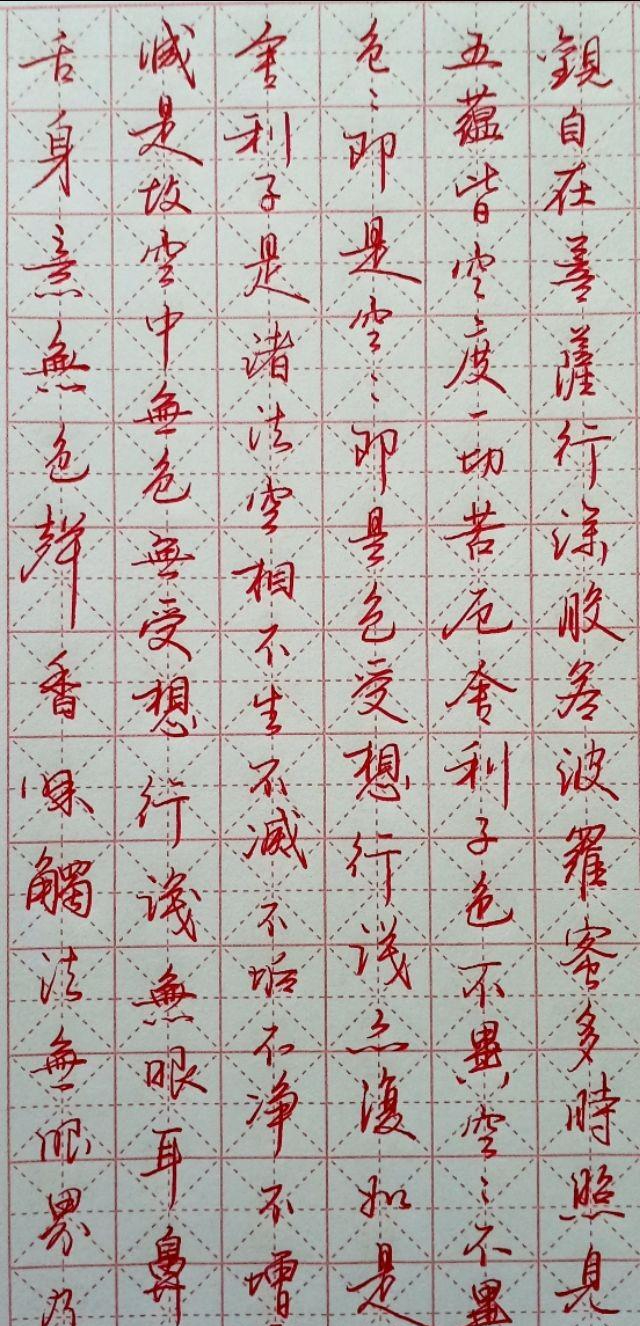 觀自在菩薩行深般若波羅蜜多時照見
五蘊皆空度一切苦厄舍利子色不異空〻不異
色〻即是空〻即是色受想行識亦復如是
舍利子是諸法空相不生不滅不垢不净不增
減是故空中無色無受想行識無眼耳鼻
舌身意無色聲香味觸法無眼界乃